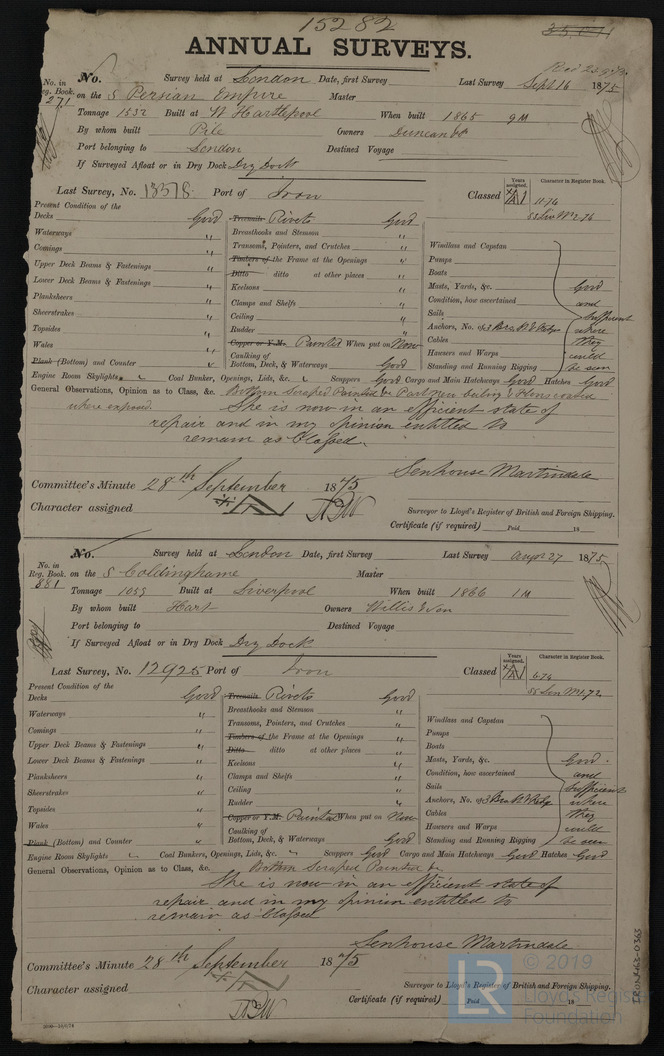 15282
35071
ANNUAL SURVEYS.
No. in Reg. Book. No. Survey held at London Date, first Survey Last Survey Sept 16 1875
271 on the S Persian Empire Master
Tonnage 1532 Built at W Hartlepool When built 1865 9M
By whom built Pile Owners Duncan
Port belonging to London Destined Voyage
If Surveyed Afloat or in Dry Dock Dry Dock
Last Survey, No. 13378 Port of Iron Classed Years assigned. Character in Register Book.
A1 11.74
Present Condition of the
Decks Good Treenails Rivets Good
Waterways " Breasthooks and Stemson "
Comings " Transoms, Pointers, and Crutches " Windlass and Capstan
Upper Deck Beams & Fastenings " Timbers of the Frame at the Openings " Pumps
Lower Deck Beams & Fastenings " Ditto ditto at other places " Boats
Planksheers " Keelsons " Masts, Yards, &c. Good
Sheerstrakes " Clamps and Shelfs " Condition, how ascertained and
Topsides " Ceiling " Sails Sufficient
Wales " Rudder " Anchors, No. of 3 where
Plank (Bottom) and Counter " Copper or Y.M. Painted When put on Now Cables they
Caulking of Bottom, Deck, & Waterways Good Hawsers and Warps could
Standing and Running Rigging be seen
Engine Room Skylights Coal Bunker, Openings, Lids, &c. Scuppers Good Cargo and Main Hatchways Good Hatches Good
General Observations, Opinion as to Class, &c. Bottom Scraped Painted & Part New ceiling
where exposed. She is now in an efficient state of
repair and in my opinion entitled to
remain as Classed.
Senhouse Martindale
Committee's Minute 28th September 1875
Character assigned A1
Surveyor to Lloyd's Register of British and Foreign Shipping.
Certificate (if required) Paid 18
No. in Reg. Book. No. Survey held at London Date, first Survey Last Survey Augst 27 1875
881 on the S Coldinghame Master
Tonnage 1059 Built at Liverpool When built 1866 1M
By whom built Hart Owners Willis & Son
Port belonging to Destined Voyage
If Surveyed Afloat or in Dry Dock Dry Dock
Last Survey, No. 12925 Port of Iron Classed Years assigned. Character in Register Book.
A1 6.74
Present Condition of the
Decks Good Treenails Rivets Good
Waterways " Breasthooks and Stemson "
Comings " Transoms, Pointers, and Crutches " Windlass and Capstan
Upper Deck Beams & Fastenings " Timbers of the Frame at the Openings " Pumps
Lower Deck Beams & Fastenings " Ditto ditto at other places " Boats
Planksheers " Keelsons " Masts, Yards, &c. Good
Sheerstrakes " Clamps and Shelfs " Condition, how ascertained and
Topsides " Ceiling " Sails Sufficient
Wales " Rudder " Anchors, No. of 3 where
Plank (Bottom) and Counter " Copper or Y.M. Painted When put on Now Cables they
Caulking of Bottom, Deck, & Waterways Good Hawsers and Warps could
Standing and Running Rigging be seen
Engine Room Skylights Coal Bunkers, Openings, Lids, &c. Scuppers Good Cargo and Main Hatchways Good Hatches Good
General Observations, Opinion as to Class, &c. Bottom Scraped Painted &c
She is now in an efficient state of
repair and in my opinion entitled to
remain as Classed
Senhouse Martindale
Committee's Minute 28th September 1875
Character assigned A1
Surveyor to Lloyd's Register of British and Foreign Shipping.
Certificate (if required) Paid 18
IRON463-0363
© 2019
LR Lloyd's Register
Foundation